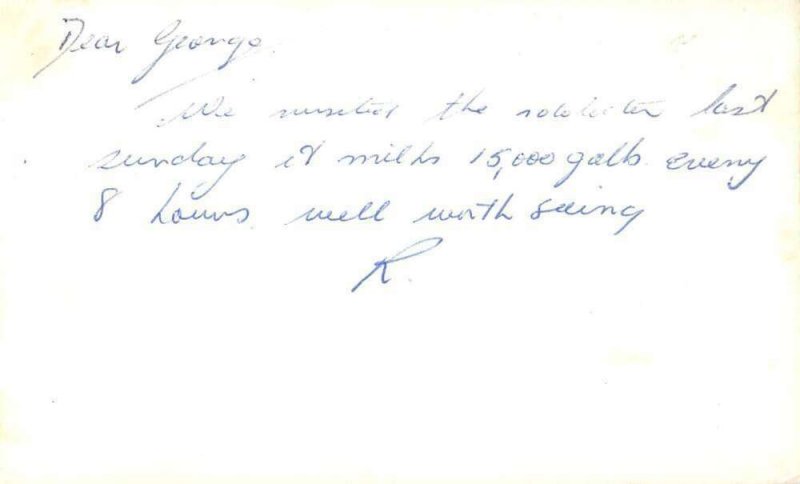 Dear George.
We visited the rotolactor last
sunday it milks 15,000 galls. every
8 hours. well worth seeing
R.